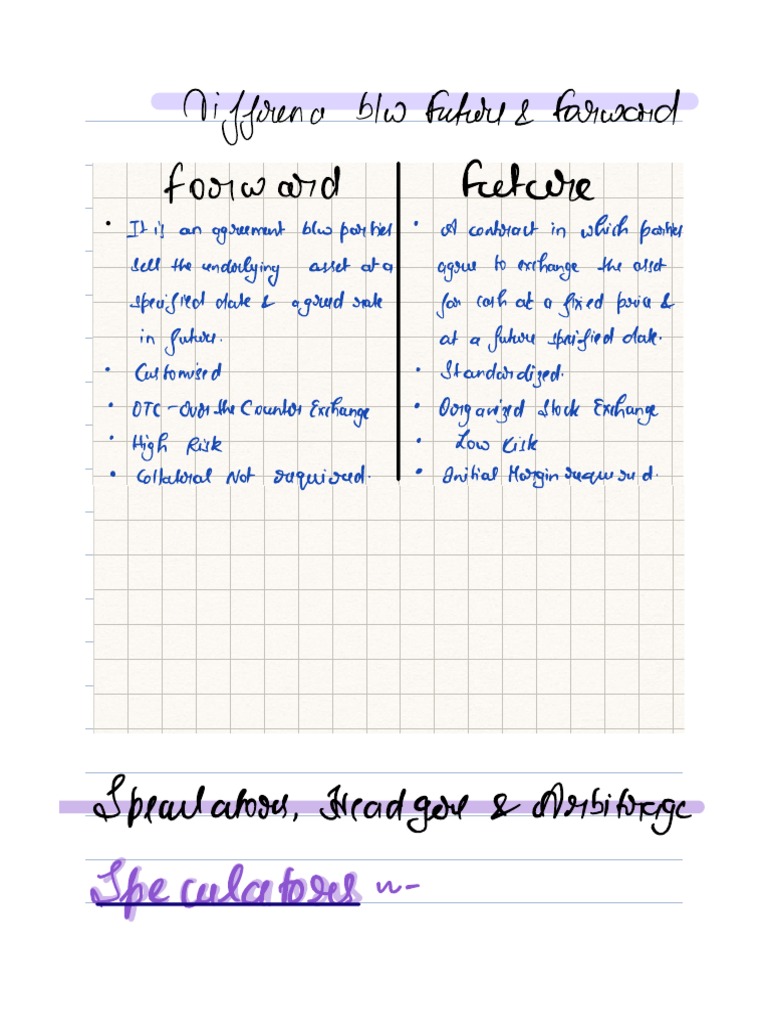 Differenc b/w Future & Forward
Forward
Future
• It is an agreement b/w parties
sell the underlying asset at a
specified date & agreed rate
in future.
• Customised
• OTC – Over the Counter Exchange
• High Risk
• Collateral Not required.
• A contract in which parties
agree to exchange the asset
for cash at a fixed price &
at a future specified date.
• Standardized.
• Organized Stock Exchange
• Low Risk
• Initial Margin required.
Speculators, Headgers & Arbitrage
Speculators :-